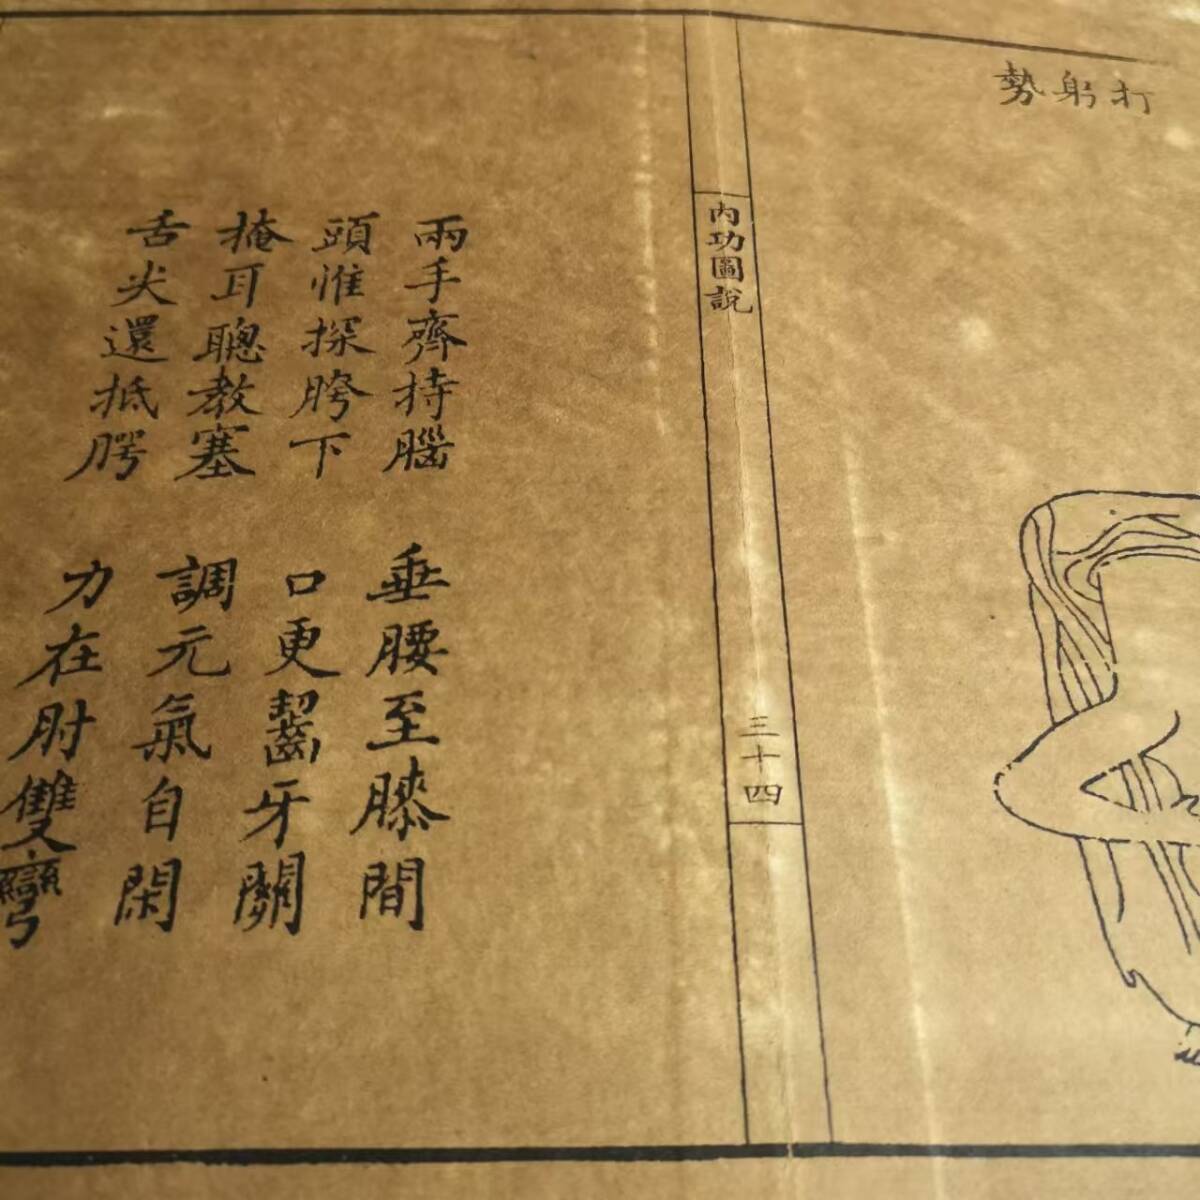 打躬勢
内功圖說
三十四
兩手齊持腦 垂腰至膝間
頭惟探胯下 口更齧牙關
掩耳聰教塞 調元氣自閑
舌尖還抵腭 力在肘雙彎